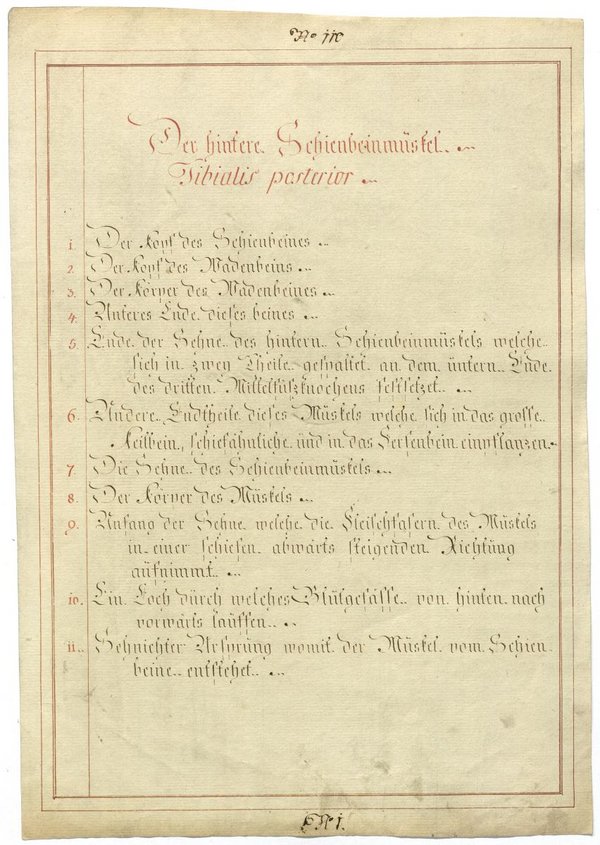 No 110
Der hintere Schienbeinmüskel.
Tibialis posterior
1. Der Kopf des Schienbeines
2. Der Kopf des Wadenbeins
3. Der Körper des Wadenbeines
4. Unteres Ende dieses beines
5. Ende der Sehne des hintern Schienbeinmüskels welche
sich in zwey Theile gespaltet an dem üntern Ende
des dritten Mittelfüsknochens festsetzet.
6. Andere Endtheile dieses Müskels welche sich in das grosse
Keilbein, schifähnliche und in das Fersenbein einpflanzen.
7. Die Sehne des Schienbeinmüskels
8. Der Körper des Müskels
9. Anfang der Sehne welche die Fleischfasern des Müskels
in einer schiefen abwärts steigenden Richtüng
aüfnimmt.
10. Ein Loch dürch welches Blütgefässe von hinten nach
vorwärts lauffen.
11. Sehnichter Ursprüng womit der Müskel vom Schien-
beine entstehet.
No 1.